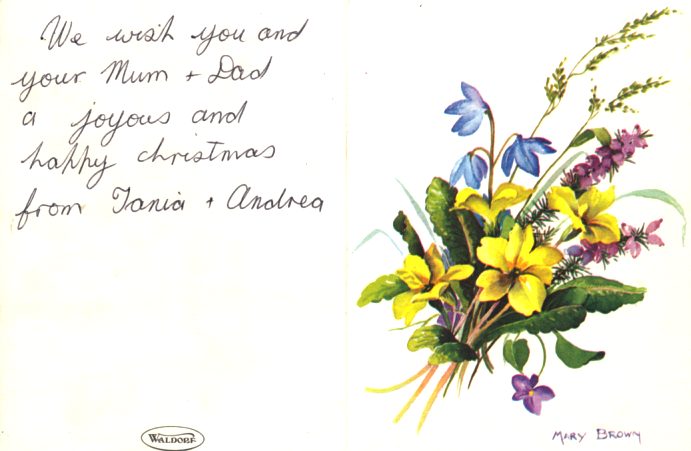 We wish you and
your Mum + Dad
a joyous and
happy christmas
from Tania + Andrea
WALDORF
MARY BROWN